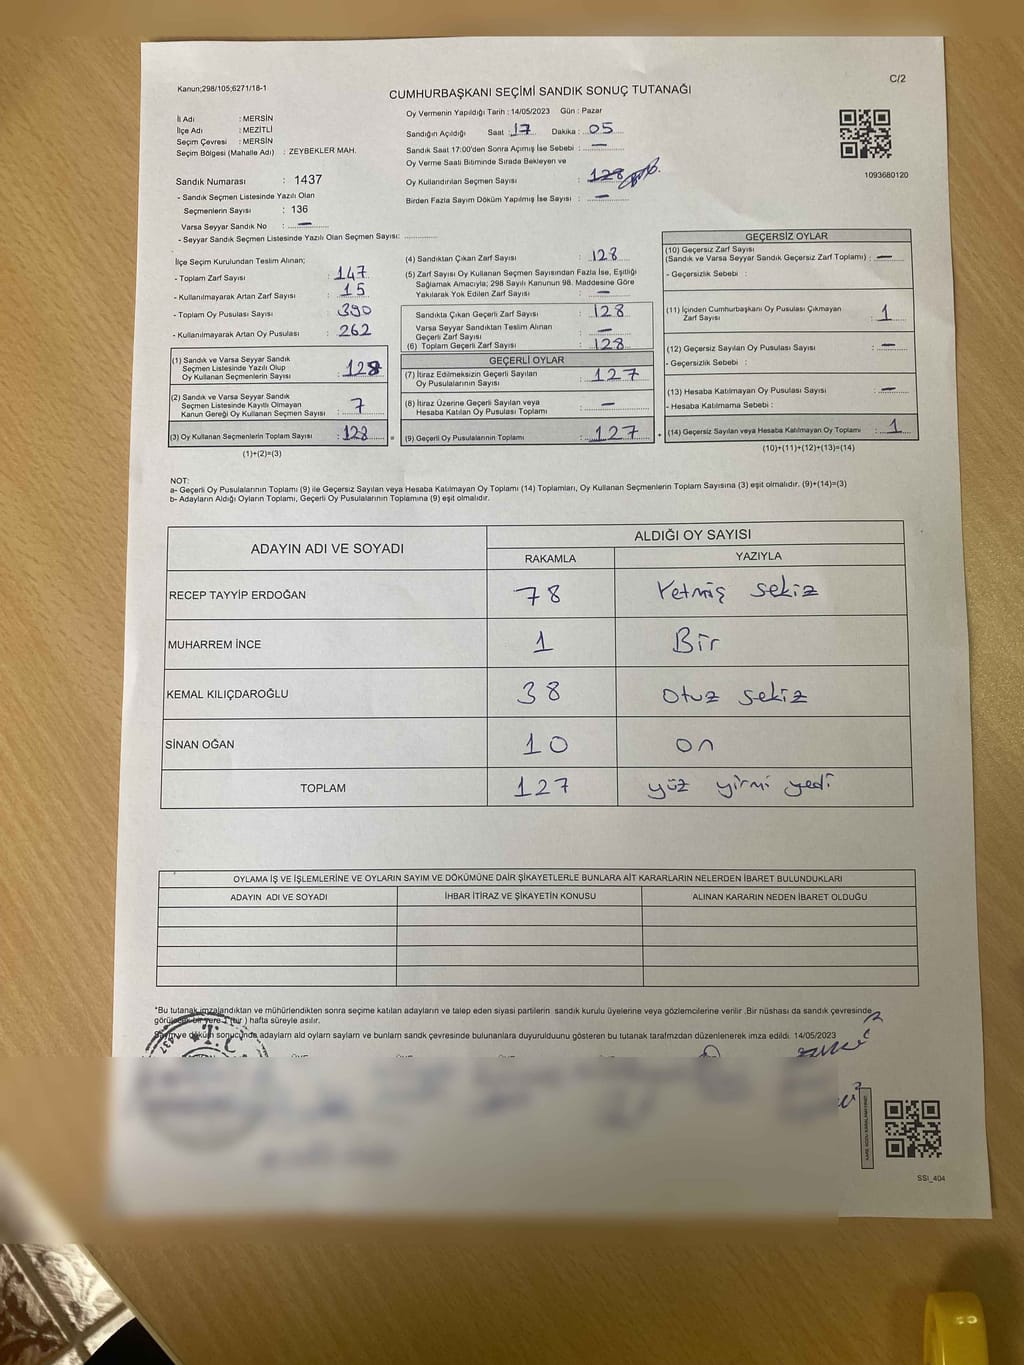 Kanun;298/105;6271/18-1
C/2
CUMHURBAŞKANI SEÇİMİ SANDIK SONUÇ TUTANAĞI
İl Adı : MERSİN
İlçe Adı : MEZİTLİ
Seçim Çevresi : MERSİN
Seçim Bölgesi (Mahalle Adı) : ZEYBEKLER MAH.
Sandık Numarası : 1437
- Sandık Seçmen Listesinde Yazılı Olan
Seçmenlerin Sayısı : 136
Varsa Seyyar Sandık No : —
- Seyyar Sandık Seçmen Listesinde Yazılı Olan Seçmen Sayısı: ............
Oy Vermenin Yapıldığı Tarih : 14/05/2023 Gün : Pazar
Sandığın Açıldığı Saat : 17 Dakika : 05
Sandık Saat 17:00'den Sonra Açımış İse Sebebi : —
Oy Verme Saati Bitiminde Sırada Bekleyen ve
Oy Kullandırılan Seçmen Sayısı : 128
Birden Fazla Sayım Döküm Yapılmış İse Sayısı : —
1093680120
İlçe Seçim Kurulundan Teslim Alınan;
- Toplam Zarf Sayısı : 147
- Kullanılmayarak Artan Zarf Sayısı : 15
- Toplam Oy Pusulası Sayısı : 390
- Kullanılmayarak Artan Oy Pusulası : 262
(1) Sandık ve Varsa Seyyar Sandık
Seçmen Listesinde Yazılı Olup
Oy Kullanan Seçmenlerin Sayısı : 128
(2) Sandık ve Varsa Seyyar Sandık
Seçmen Listesinde Kayıtlı Olmayan
Kanun Gereği Oy Kullanan Seçmen Sayısı : 7
(3) Oy Kullanan Seçmenlerin Toplam Sayısı : 128 =
(1)+(2)=(3)
(4) Sandıktan Çıkan Zarf Sayısı : 128
(5) Zarf Sayısı Oy Kullanan Seçmen Sayısından Fazla İse, Eşitliği
Sağlamak Amacıyla; 298 Sayılı Kanunun 98. Maddesine Göre
Yakılarak Yok Edilen Zarf Sayısı : —
Sandıkta Çıkan Geçerli Zarf Sayısı : 128
Varsa Seyyar Sandıktan Teslim Alınan
Geçerli Zarf Sayısı : —
(6) Toplam Geçerli Zarf Sayısı : 128
GEÇERLİ OYLAR
(7) İtiraz Edilmeksizin Geçerli Sayılan
Oy Pusulalarının Sayısı : 127
(8) İtiraz Üzerine Geçerli Sayılan veya
Hesaba Katılan Oy Pusulası Toplamı : —
(9) Geçerli Oy Pusulalarının Toplamı : 127 +
GEÇERSİZ OYLAR
(10) Geçersiz Zarf Sayısı
(Sandık ve Varsa Seyyar Sandık Geçersiz Zarf Toplamı) : —
- Geçersizlik Sebebi :
(11) İçinden Cumhurbaşkanı Oy Pusulası Çıkmayan
Zarf Sayısı : 1
(12) Geçersiz Sayılan Oy Pusulası Sayısı : —
- Geçersizlik Sebebi :
(13) Hesaba Katılmayan Oy Pusulası Sayısı : —
- Hesaba Katılmama Sebebi :
(14) Geçersiz Sayılan veya Hesaba Katılmayan Oy Toplamı : 1
(10)+(11)+(12)+(13)=(14)
NOT:
a- Geçerli Oy Pusulalarının Toplamı (9) ile Geçersiz Sayılan veya Hesaba Katılmayan Oy Toplamı (14) Toplamları, Oy Kullanan Seçmenlerin Toplam Sayısına (3) eşit olmalıdır. (9)+(14)=(3)
b- Adayların Aldığı Oyların Toplamı, Geçerli Oy Pusulalarının Toplamına (9) eşit olmalıdır.
ADAYIN ADI VE SOYADI
ALDIĞI OY SAYISI
RAKAMLA YAZIYLA
RECEP TAYYİP ERDOĞAN 78 Yetmiş sekiz
MUHARREM İNCE 1 Bir
KEMAL KILIÇDAROĞLU 38 Otuz sekiz
SİNAN OĞAN 10 on
TOPLAM 127 yüz yirmi yedi
OYLAMA İŞ VE İŞLEMLERİNE VE OYLARIN SAYIM VE DÖKÜMÜNE DAİR ŞİKAYETLERLE BUNLARA AİT KARARLARIN NELERDEN İBARET BULUNDUKLARI
ADAYIN ADI VE SOYADI İHBAR İTİRAZ VE ŞİKAYETİN KONUSU ALINAN KARARIN NEDEN İBARET OLDUĞU
*Bu tutanak imzalandıktan ve mühürlendikten sonra seçime katılan adayların ve talep eden siyasi partilerin sandık kurulu üyelerine veya gözlemcilerine verilir .Bir nüshası da sandık çevresinde
görülecek bir yere 1 (bir ) hafta süreyle asılır.
Sayım ve döküm sonucunda adaylarn ald oylarn saylarn ve bunlarn sandk çevresinde bulunanlara duyurulduunu gösteren bu tutanak tarafmzdan düzenlenerek imza edildi. 14/05/2023
T.C
SSI_404